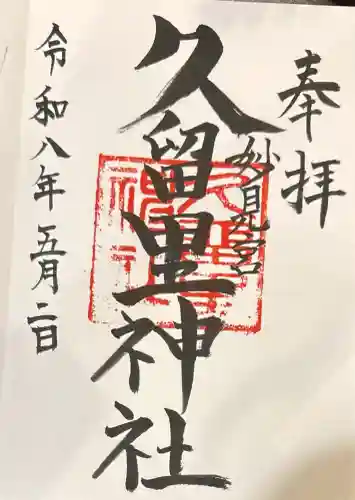 奉拝
妙見宮
久留里神社
令和八年五月二日